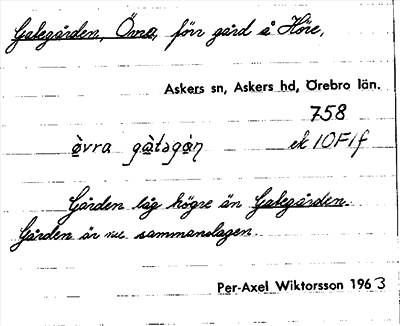 Galegården, Övra, förr gård å Höre,
Askers sn, Askers hd, Örebro län.
758
ek 10F1f
Gården låg högre än Galegården.
Gården är nu sammanslagen.
Per-Axel Wiktorsson 1963